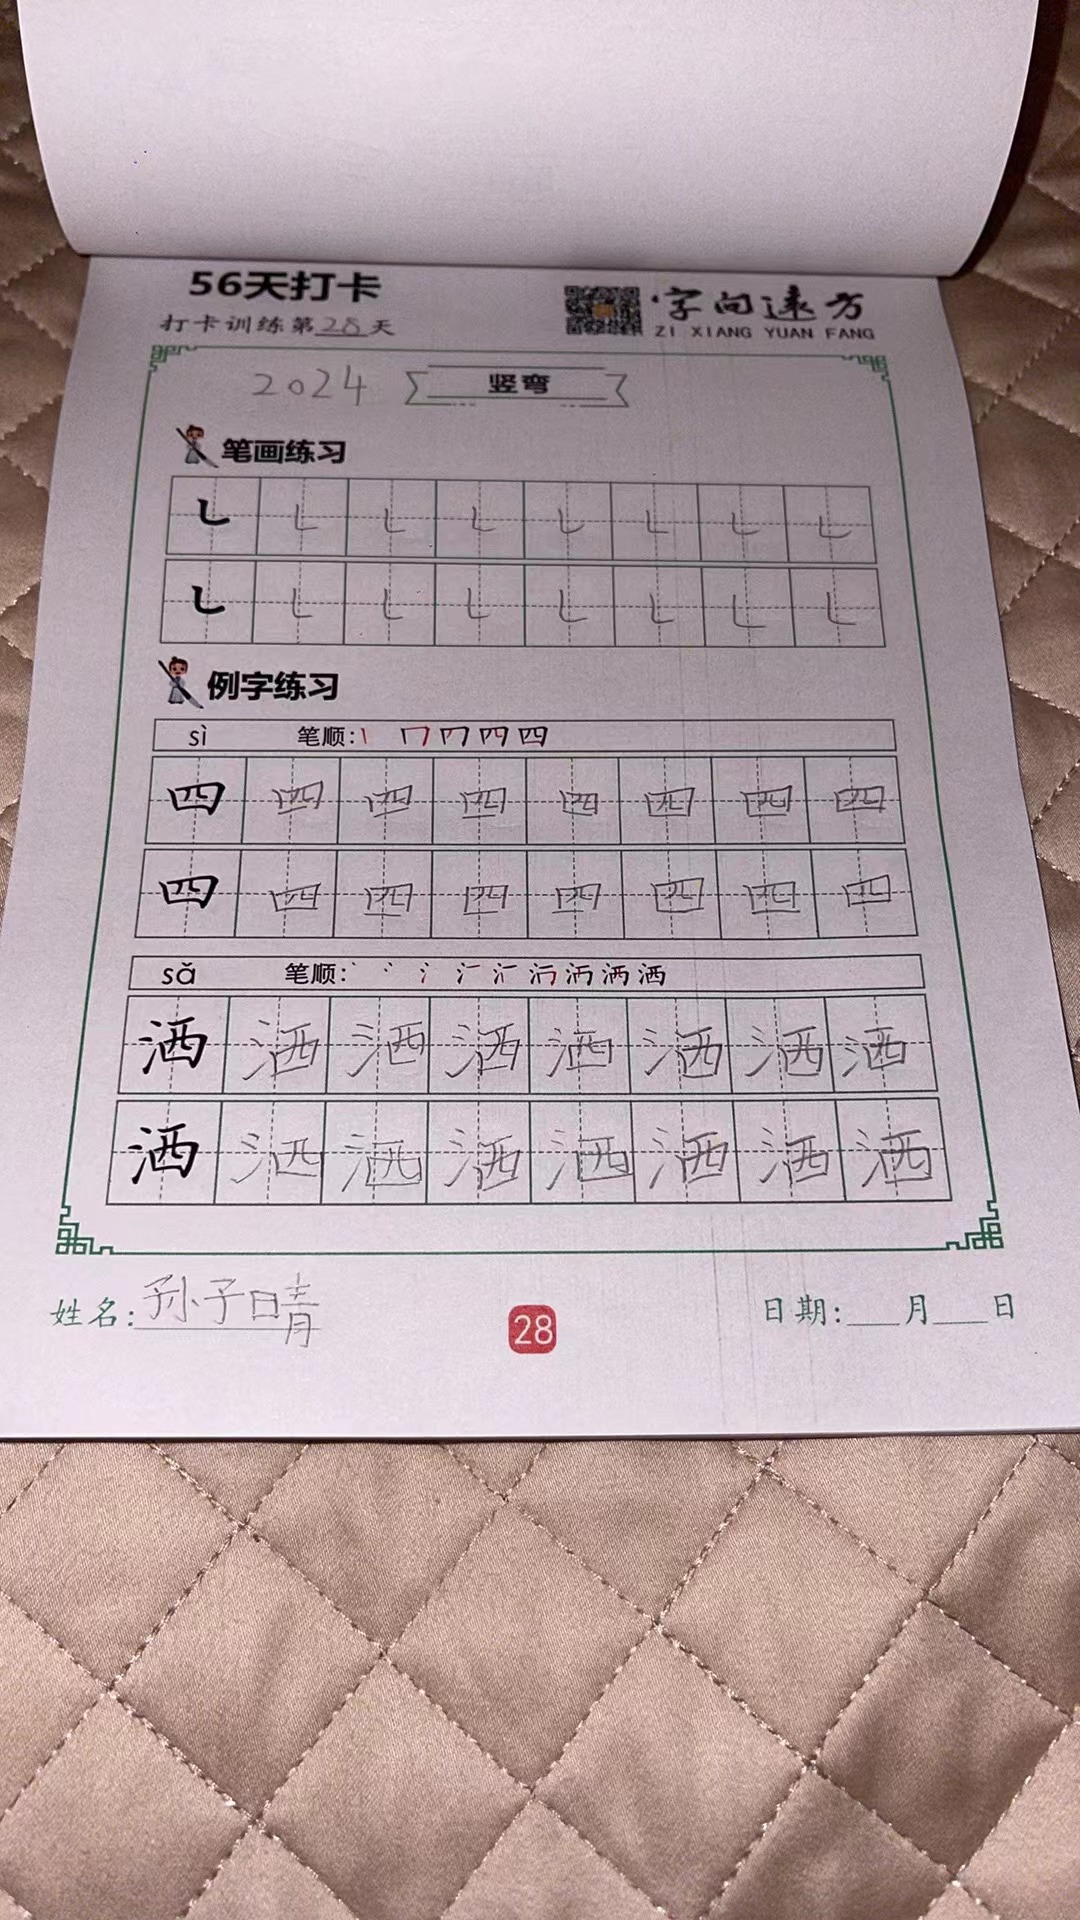 56天打卡
打卡训练第28天
字向远方
ZI XIANG YUAN FANG
2024
竖弯
笔画练习
例字练习
sì 笔顺:
四
四 四 四 四 四 四 四 四
四 四 四 四 四 四 四 四
sǎ 笔顺: 氵 洒 洒
洒 洒 洒 洒 洒 洒 洒 洒
洒 洒 洒 洒 洒 洒 洒 洒
姓名:孙子晴
28
日期:___月___日